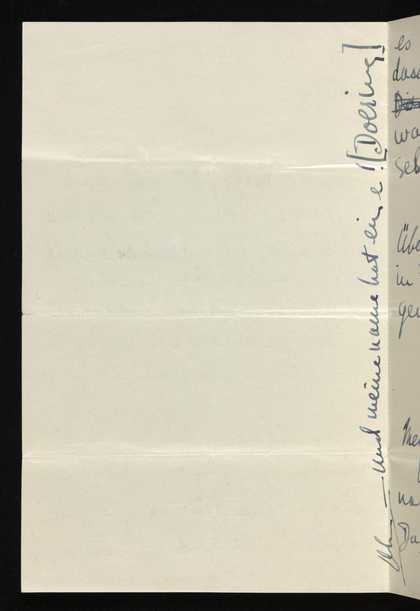 Oh — und meine name hat ein e! [Doering]
es
dass
wa
seh
Übe
in
gen
na
Da